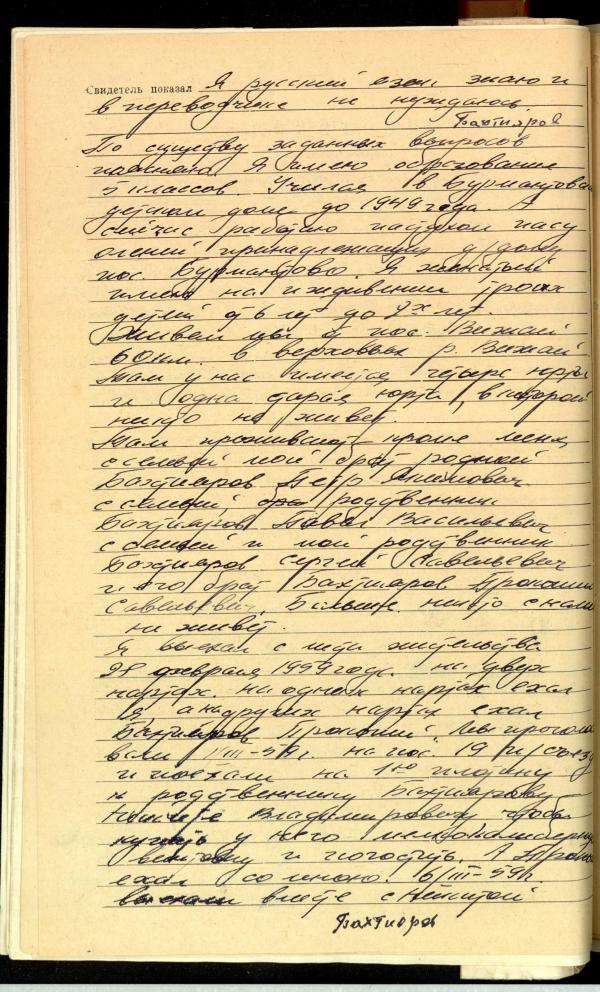 Свидетель показал Я русский язык знаю и
в переводчике не нуждаюсь.
Бахтияров
По существу заданных вопросов
поясняю. Я имею образование
5 классов. Учился в Бурмантовском
детском доме до 1949 года. А
сейчас работаю пастухом пасу
оленей принадлежащих д/дому
пос. Бурмантово. Я женатый
имею на иждивении троих
детей от 6 лет до 2х лет.
Живем мы от пос. Вижай
60 км. в верховьях р. Вижай
Там у нас имеется четыре юрты
и одна старая юрта, в которой
никто не живет.
Там проживают кроме меня
с семьей мой брат родной
Бахтияров Петр Якимович
с семьей, родственник
Бахтияров Павел Васильевич
с семьей и мой родственник
Бахтияров Сергей Савельевич
и его брат Бахтияров Прокопий
Савельевич. Больше никто с нами
не живет.
Я выехал с места жительства
февраля 1959 года на двух
нартах. на одних нартах ехал
я, а на других нартах ехал
Бахтияров Прокопий. Мы
III-59г. на пос.
и поехали на плотину
к родственнику Бахтиярову
Никите Владимировичу чтобы
купить у него мелкокалиберную
винтовку и погостить. А Прокопий
ехал со мною. 6/III-59г.
выехали вместе с Никитой
Бахтияров